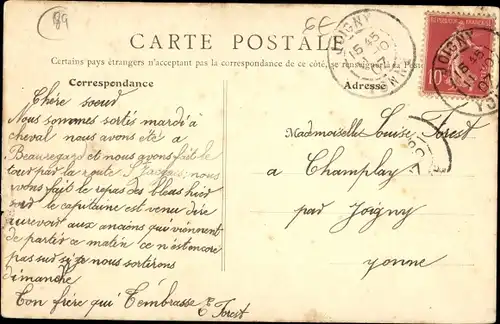 89
6E
CARTE POSTALE
Certains pays étrangers n'acceptent pas la correspondance de ce côté, se renseigner à la Poste
Correspondance
Adresse
JOIGNY
15 45
YONNE
RÉPUBLIQUE FRANÇAISE
10
Chère soeur
Nous sommes sortis mardi à
cheval nous avons été a
Beauregard et nous avons fait le
tour par la route St Jacques, nous
avons fait le repas des bleus hier
soir le capitaine est venu dire
aurevoir aux anciens qui viennent
de partir ce matin ce n'est encore
pas sur si je nous sortirons
dimanche
Ton frère qui T'embrasse E Forest
Mademoiselle Louise Forest
a Champlay
par Joigny
Yonne